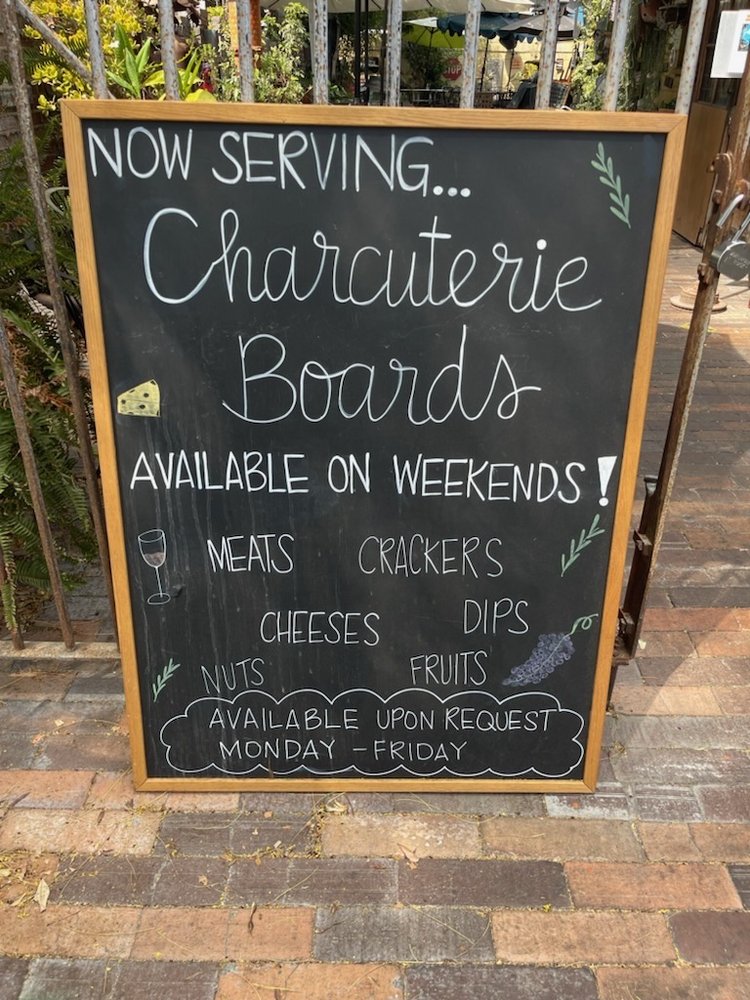 NOW SERVING...
Charcuterie
Boards
AVAILABLE ON WEEKENDS!
MEATS CRACKERS
CHEESES DIPS
NUTS FRUITS
AVAILABLE UPON REQUEST
MONDAY - FRIDAY
STOP